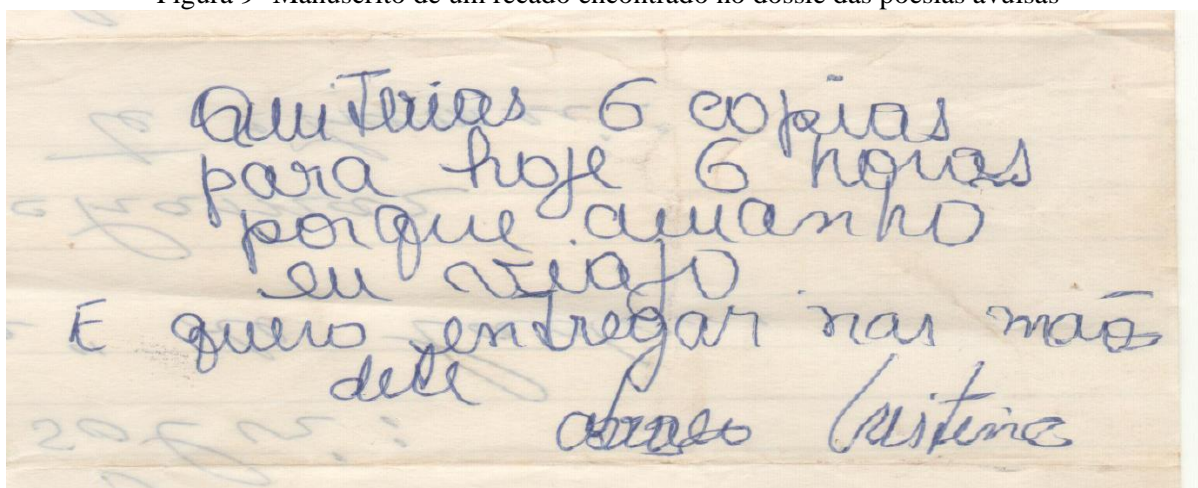 Figura 9- Manuscrito de um recado encontrado no dossiê das poesias avulsas
Quiterias 6 copias
para hoje 6 horas
porque amanhã
eu viajo
E quero entregar nas mão
dele
abraço Cristina